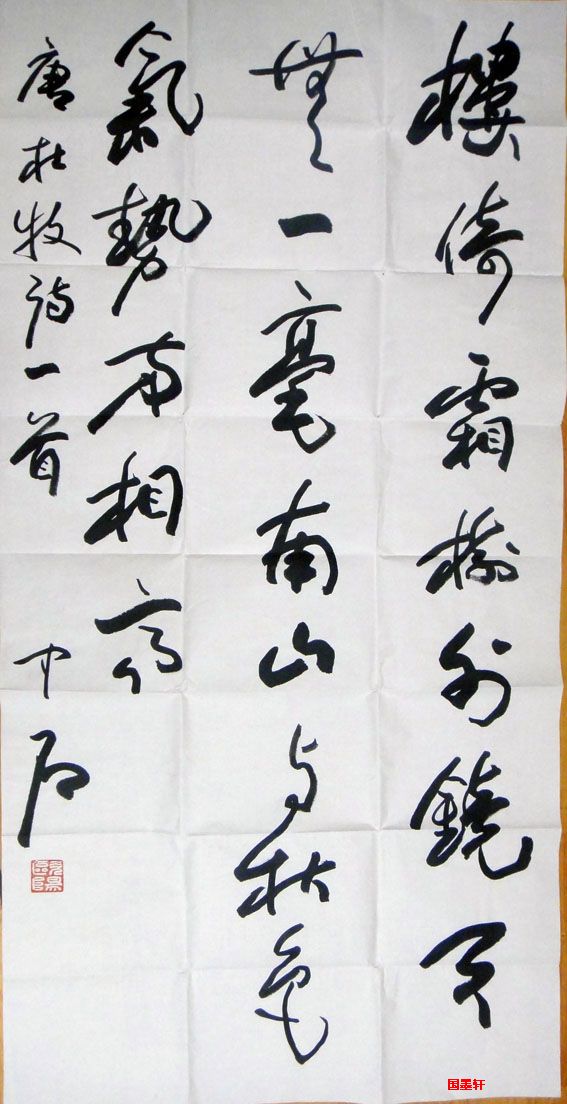 樓倚霜樹外鏡天
無一毫南山与秋色
氣勢两相高
唐杜牧诗一首
中石
国墨轩